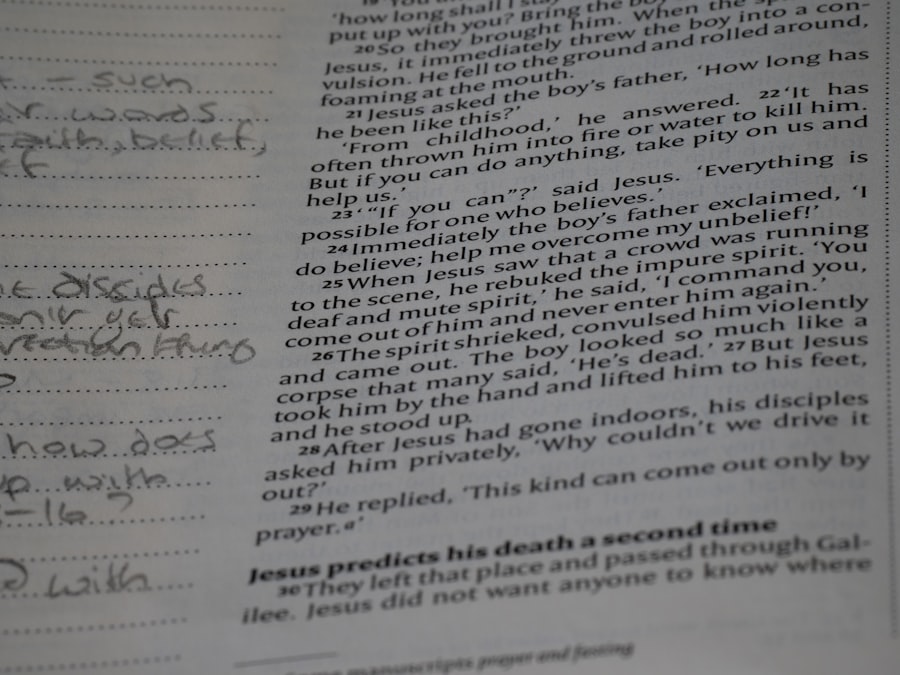 – such
words
faith, belief,
disciples
how does
up with
-16?
with
'how long shall I
put up with you? Bring the boy
20 So they brought him. When the
Jesus, it immediately threw the boy into a con-
vulsion. He fell to the ground and rolled around,
foaming at the mouth.
21 Jesus asked the boy's father, 'How long has
he been like this?'
'From childhood,' he answered. 22 'It has
often thrown him into fire or water to kill him.
But if you can do anything, take pity on us and
help us.'
23 '"If you can"?' said Jesus. 'Everything is
possible for one who believes.'
24 Immediately the boy's father exclaimed, 'I
do believe; help me overcome my unbelief!'
25 When Jesus saw that a crowd was running
to the scene, he rebuked the impure spirit. 'You
deaf and mute spirit,' he said, 'I command you,
come out of him and never enter him again.'
26 The spirit shrieked, convulsed him violently
and came out. The boy looked so much like a
corpse that many said, 'He's dead.' 27 But Jesus
took him by the hand and lifted him to his feet,
and he stood up.
28 After Jesus had gone indoors, his disciples
asked him privately, 'Why couldn't we drive it
out?'
29 He replied, 'This kind can come out only by
prayer.a'
Jesus predicts his death a second time
30 They left that place and passed through Gal-
ilee. Jesus did not want anyone to know where
manuscripts prayer and fasting